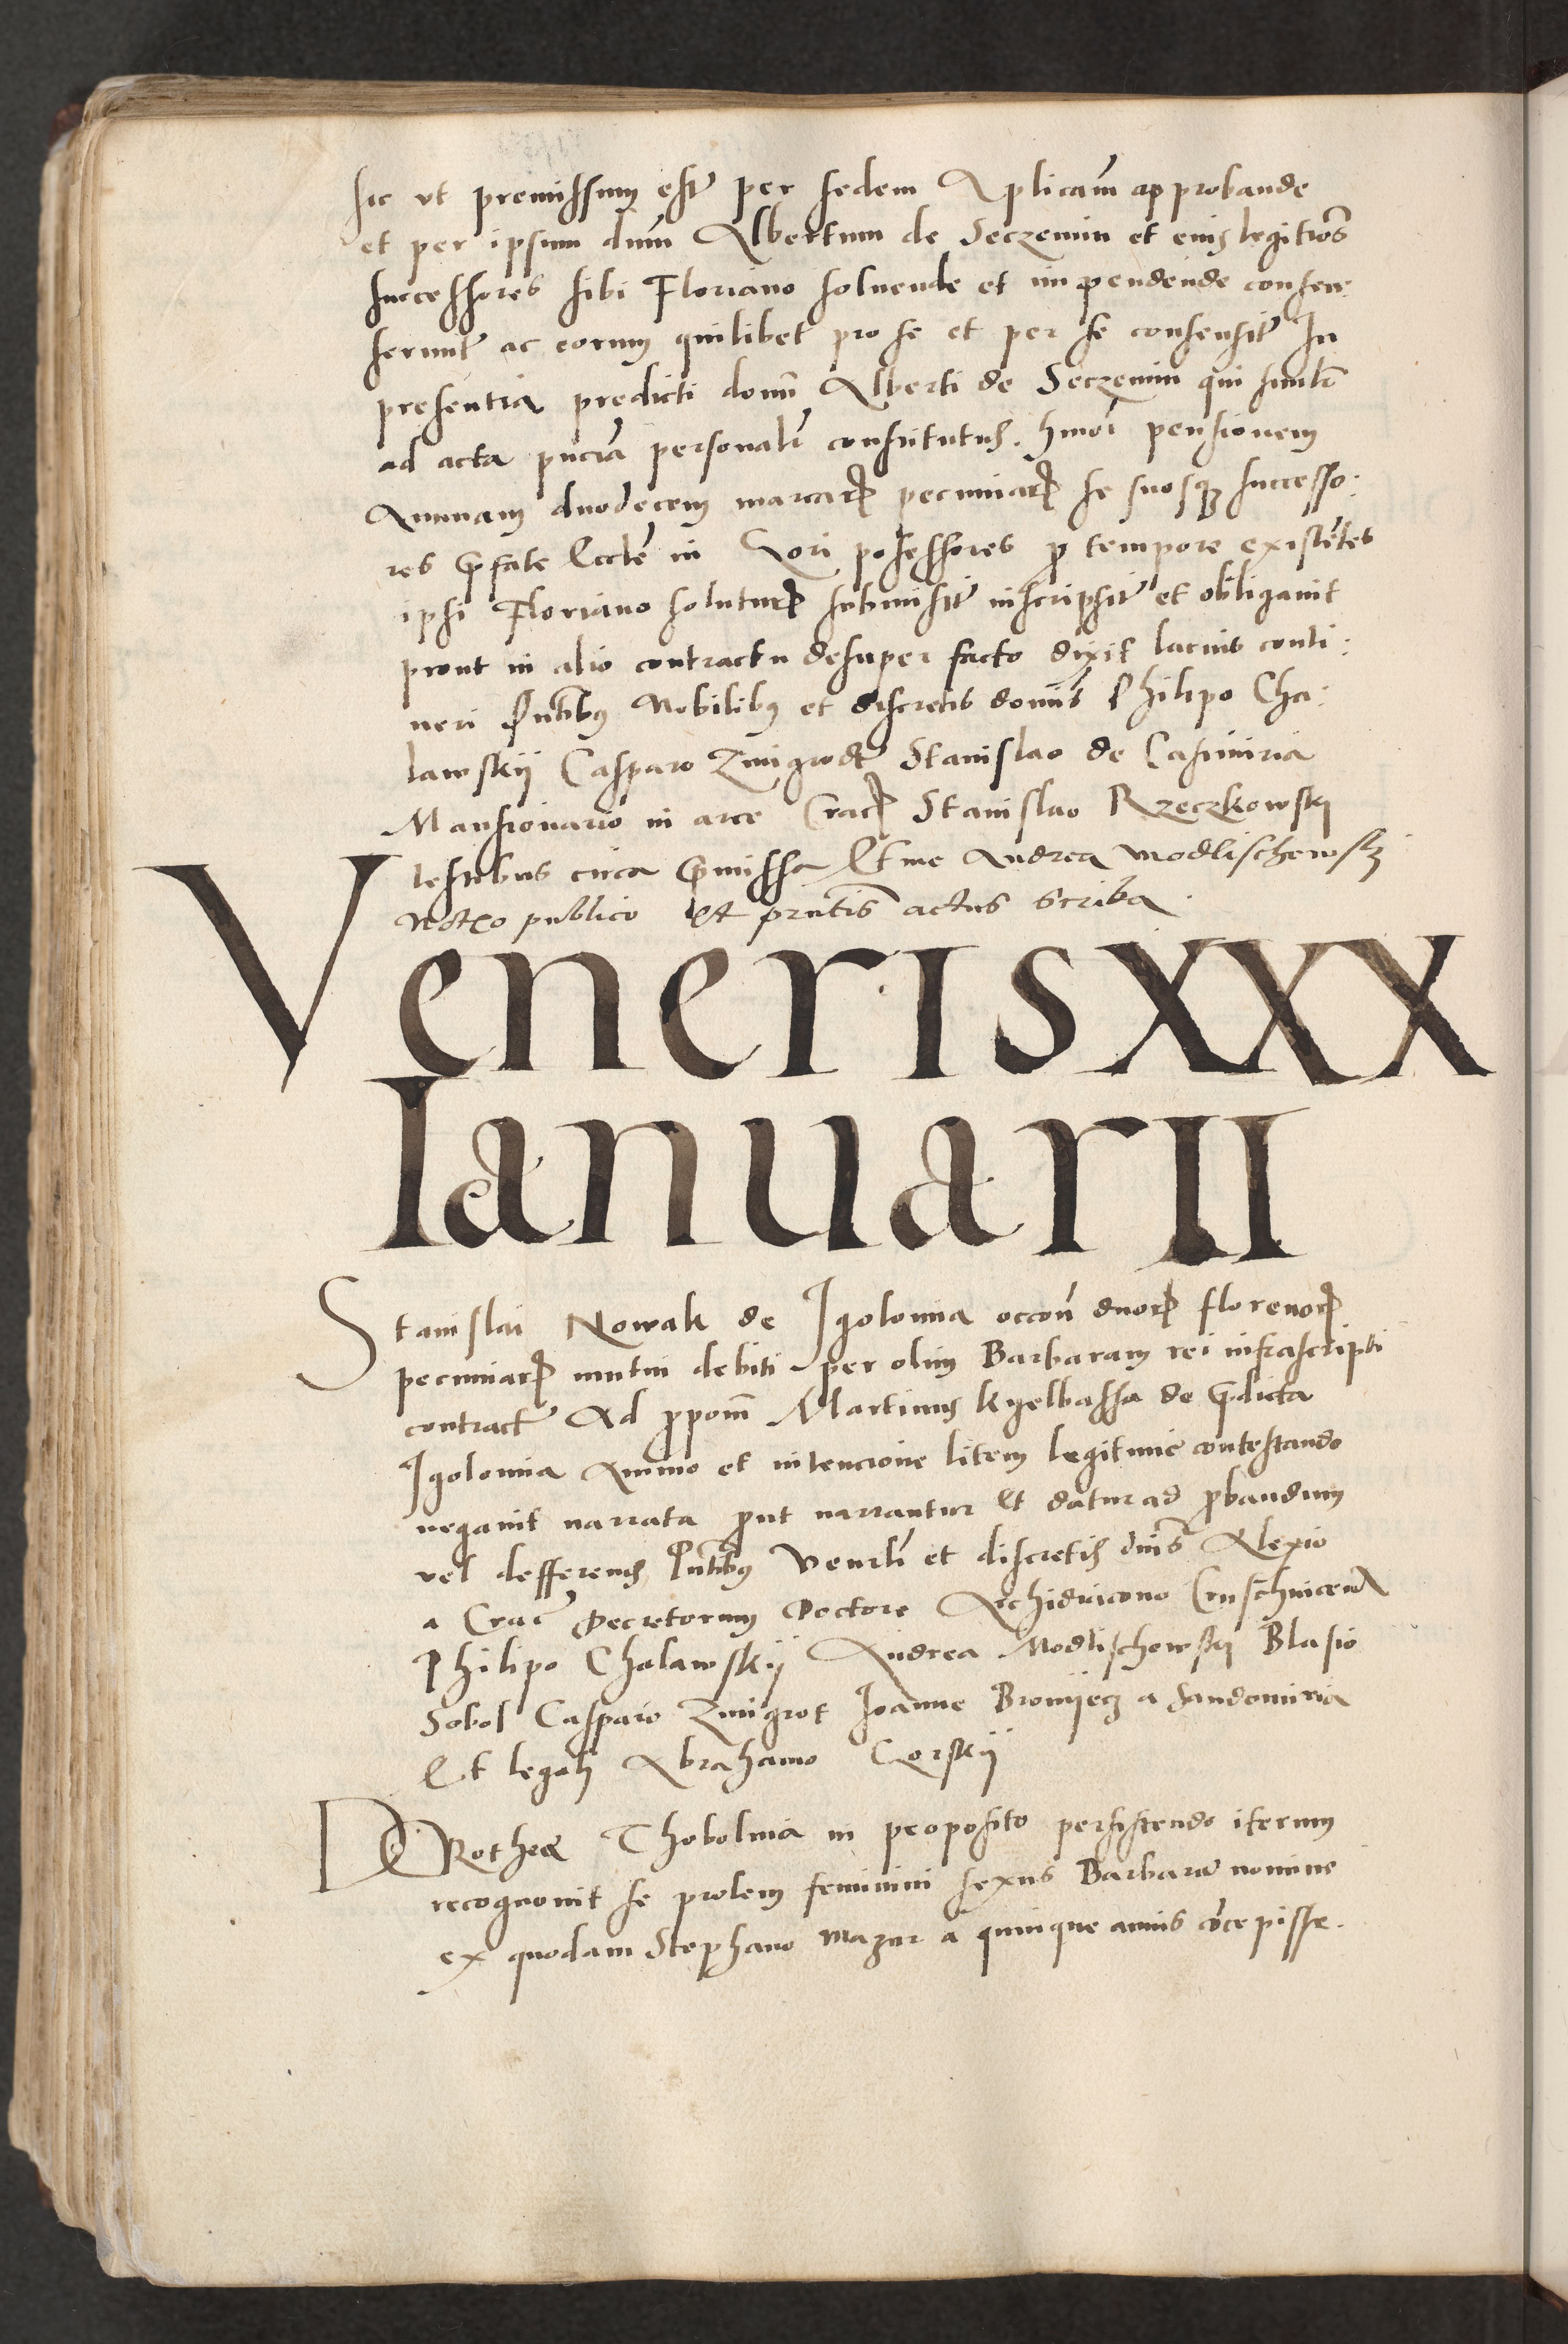 sic vt premissum est per sedem Aplicam approbande
et per ipsum dum Albertum de Seczemin et eius legitios
successores sibi Floriano soluende et impendende consen:
serunt ac eorum quilibet pro se et per se consensit In
presentia predicti domi Alberti de Seczemin qui simili
ad acta pncia personalr constitutus. hmoi pensionem
Annuam duodecem marcar pecuniar se suosq successo:
res pfate Eccle in Gori possessores p tempore existetes
ipsi Floriano solutur submisit inscripsit et obligauit
prout in alio contractu desuper facto dixit lacius conti:
neri Pntibus Nobilibus et discretis domis Philipo Cha:
lawskij Casparo Zmigrodt Stanislao de Casimiria
Mansionario in arce Crac Stanislao Rzeczkowski
testibus circa pmissa Et me Andrea Modlischewsky
Notro publico et prntis actus scriba.
VenerIS XXX
IanuarII
Stanislai Nowak de Igolomia occon duor florenor
pecuniar mutui debiti per olim Barbaram rei infrascripti
contract Ad ppom Martinus Kyelbassa de pdicta
Igolomia Animo et intencione litem legitime contestando
negauit narrata put narrantur Et datur ad pbandum
vel defferens Pntibus Venrli et discretis dnis Alexio
a Crac Decretorum Doctore Archidiacono Cruschwicen
Philipo Chalawskij Andrea Modlischowski Blasio
Sobol Casparo Zmigrot Joanne Bromijecz a Sandomiria
Et legali Abrahamo Gorskij
DORothea Thobolina in proposito persistendo iterum
recognouit se prolem feminini sexus Barbara nomine
ex quodam Stephano Mazur a quinque annis cocepisse.